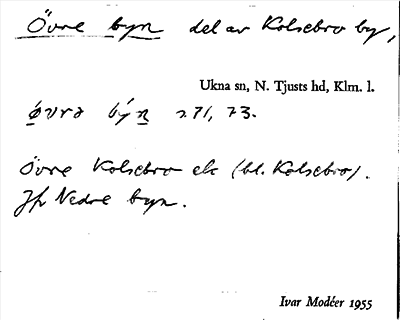 Övre byn del av Kolsebro by,
Ukna sn, N. Tjusts hd, Klm. l.
övrə býn s. 71, 73.
Övre Kolsebro el. (bl. Kolsebro).
Jfr Nedre byn.
Ivar Modéer 1955